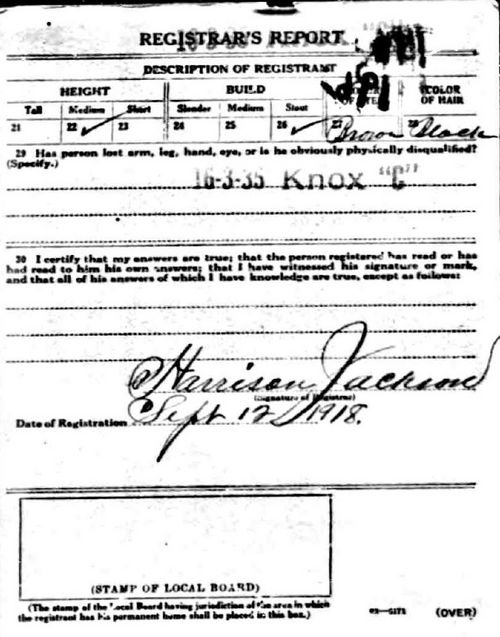 REGISTRAR'S REPORT
DESCRIPTION OF REGISTRANT
HEIGHT BUILD COLOR OF HAIR
Tall Medium Short Slender Medium Stout
21 22 ✓ 23 24 25 26 ✓ 27 Brown 28 Black
29 Has person lost arm, leg, hand, eye, or is he obviously physically disqualified?
(Specify.)
16-3-35 Knox "C"
30 I certify that my answers are true; that the person registered has read or has
had read to him his own answers; that I have witnessed his signature or mark,
and that all of his answers of which I have knowledge are true, except as follows:
Harrison Jackson
(Signature of Registrar)
Date of Registration Sept 12 1918.
(STAMP OF LOCAL BOARD)
(The stamp of the Local Board having jurisdiction of the area in which
the registrant has his permanent home shall be placed in this box.)
03-6171 (OVER)